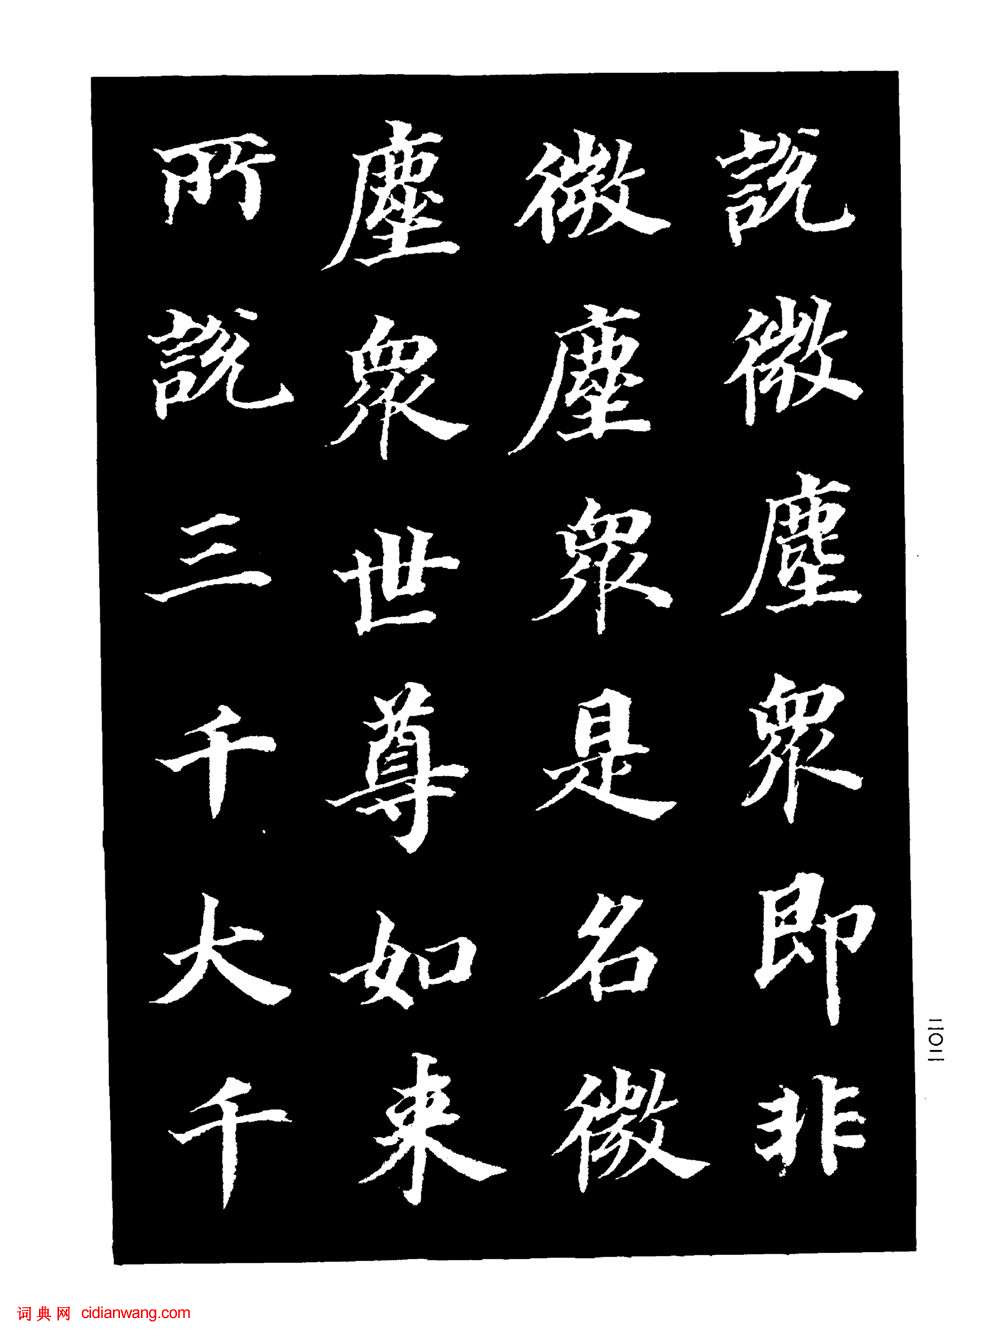 說微塵眾即非
微塵眾是名微
塵眾世尊如来
所說三千大千
二〇二
词典网 cidianwang.com